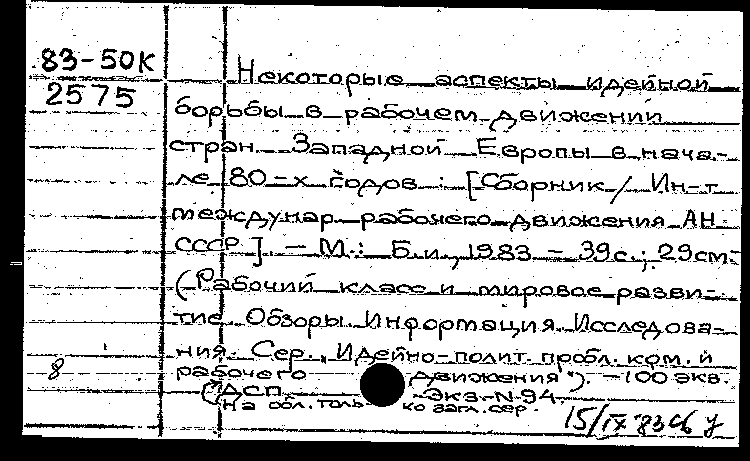 83-50К
2575
Некоторые аспекты идейной
борьбы в рабочем движении
стран Западной Европы в нача-
ле 80-х годов : [Сборник / Ин-т
междунар. рабочего движения АН
СССР]. - М. : Б.и., 1983 - 39с.; 29см.
(Рабочий класс и мировое разви-
тие. Обзоры. Информация. Исследова-
ния. Сер. "Идейно-полит. пробл. ком. и
рабочего движения"). - 100 экз.
(ДСП Экз. N 94.
На обл. толь- ко загл. сер.
8
15/IX 83